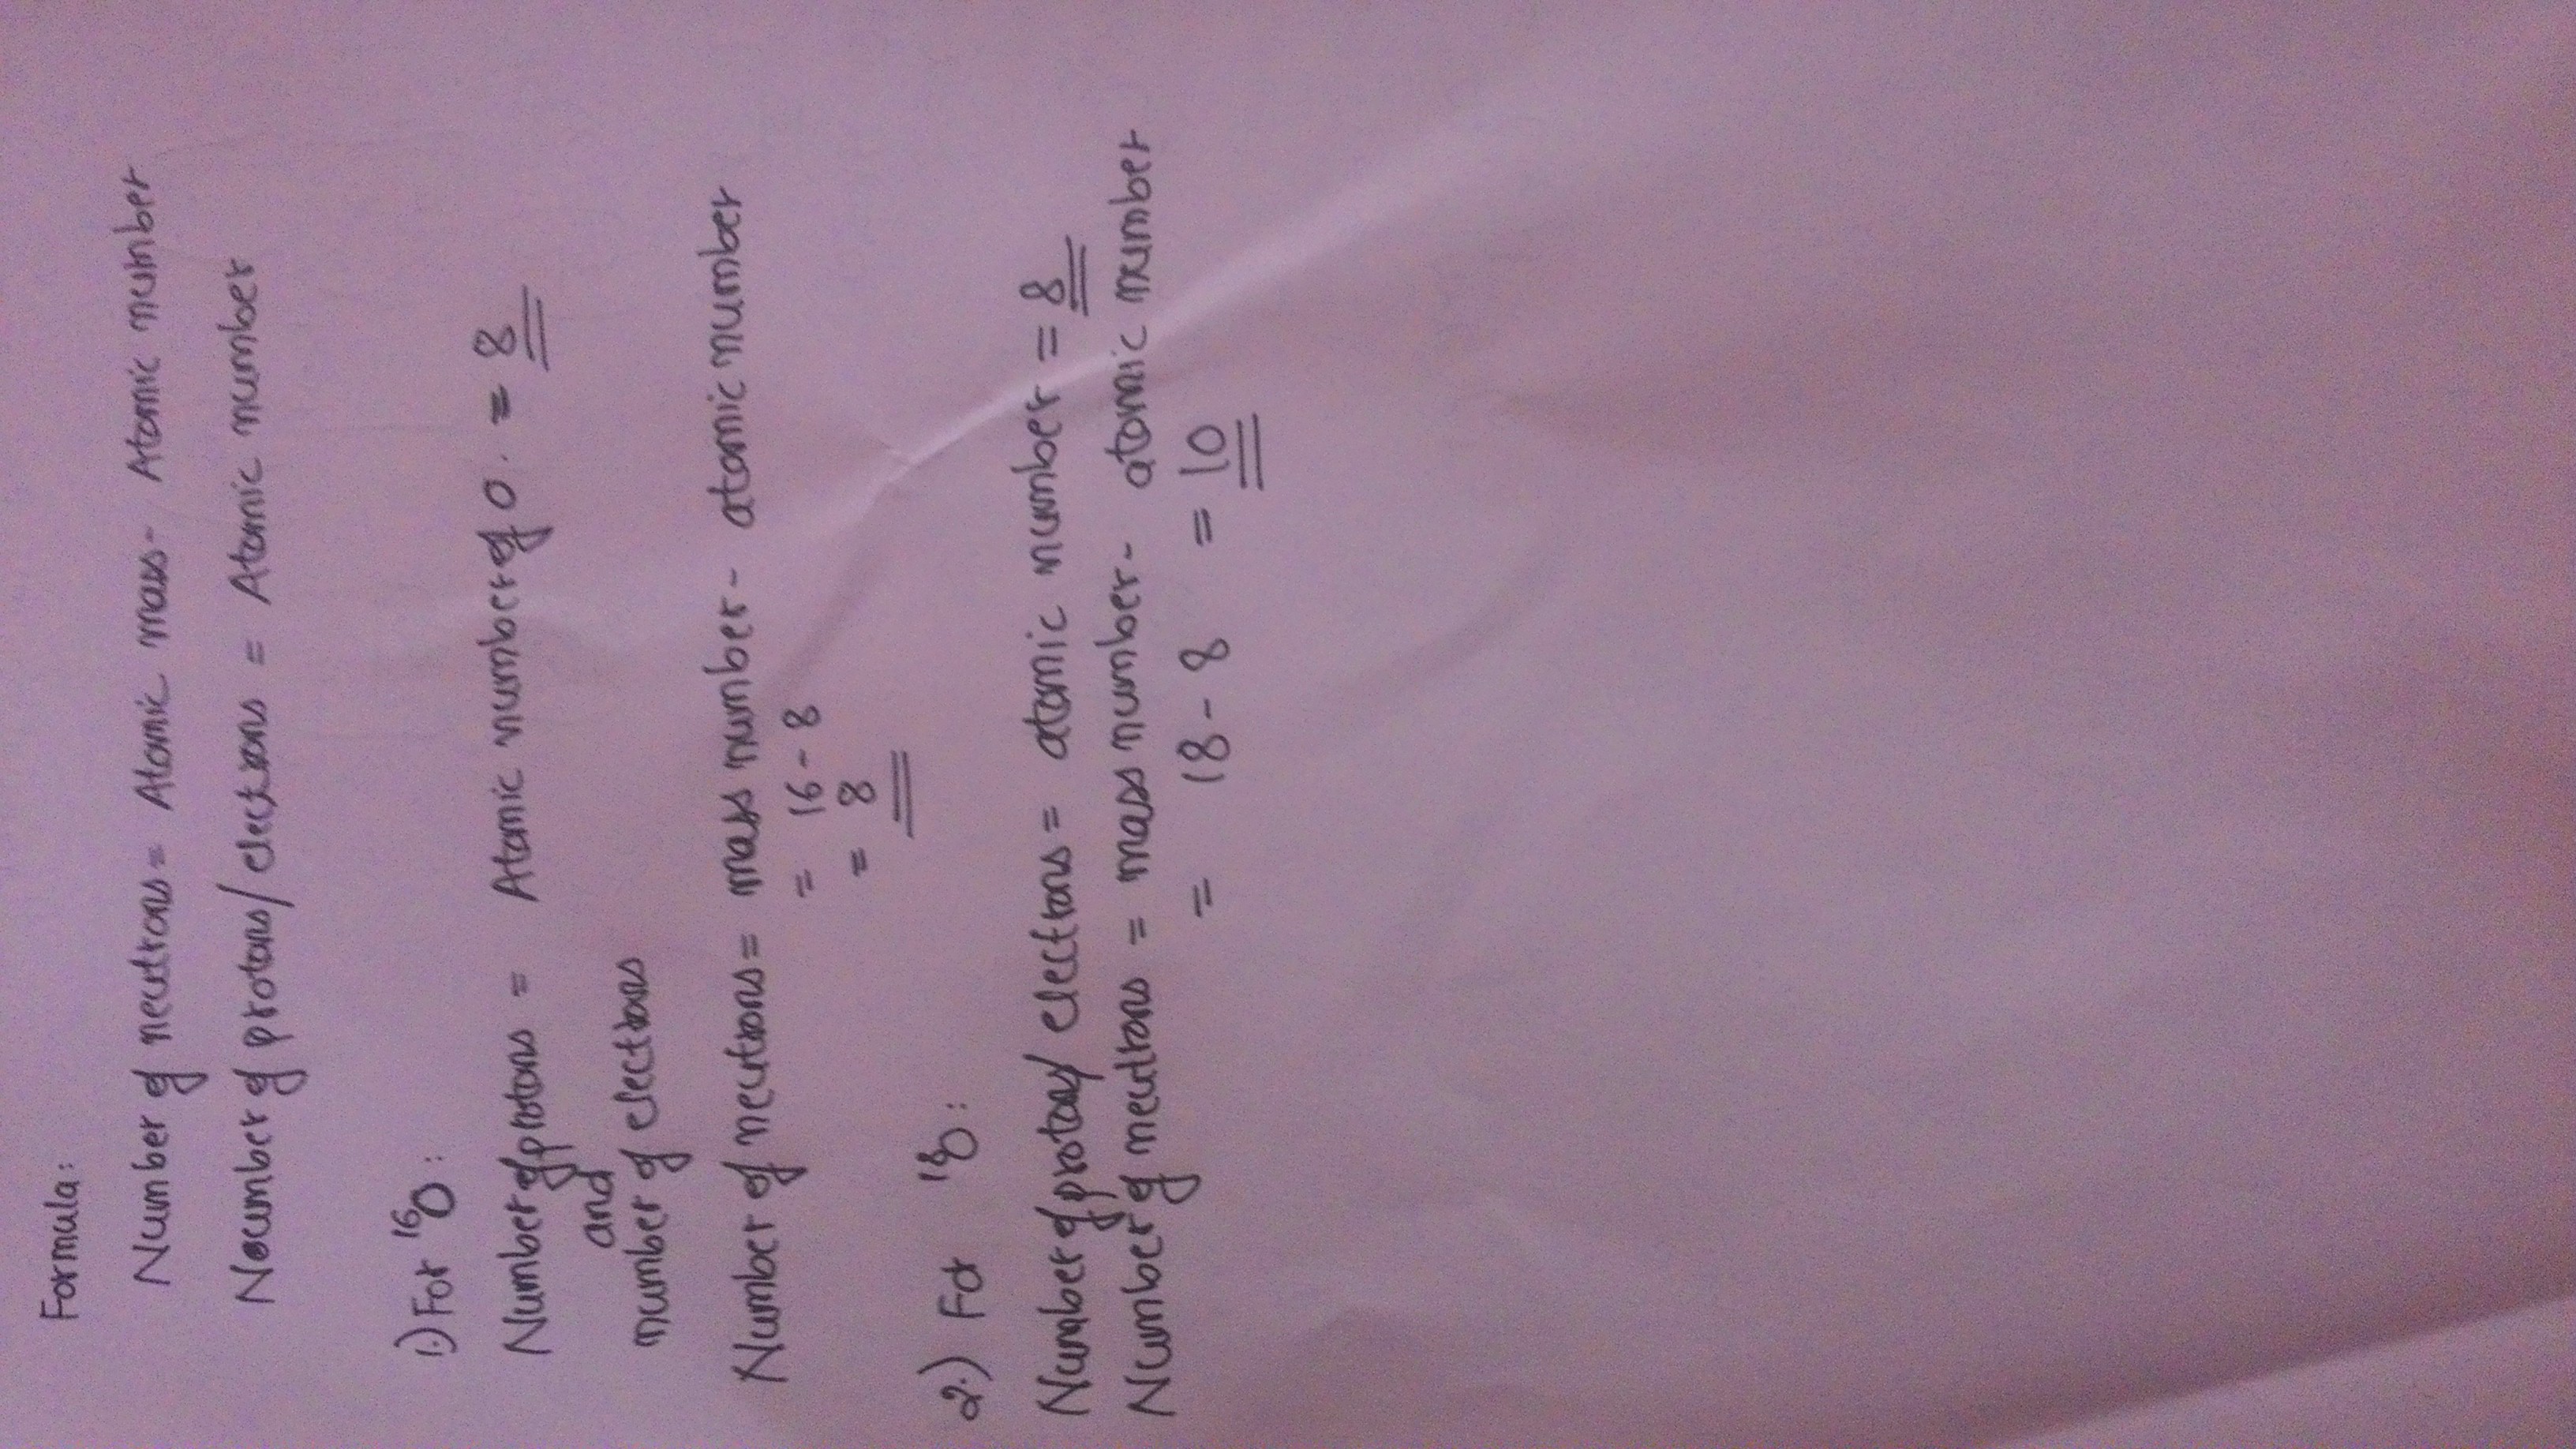 Formula:
Number of neutrons = Atomic mass - Atomic number
Number of protons/electrons = Atomic number
1.) For ¹⁶O:
Number of protons = Atomic number of O. = 8
and
number of electrons
Number of neutrons = mass number - atomic number
= 16 - 8
= 8
2.) For ¹⁸O:
Number of protons/ electrons = atomic number = 8
Number of neutrons = mass number - atomic number
= 18 - 8 = 10